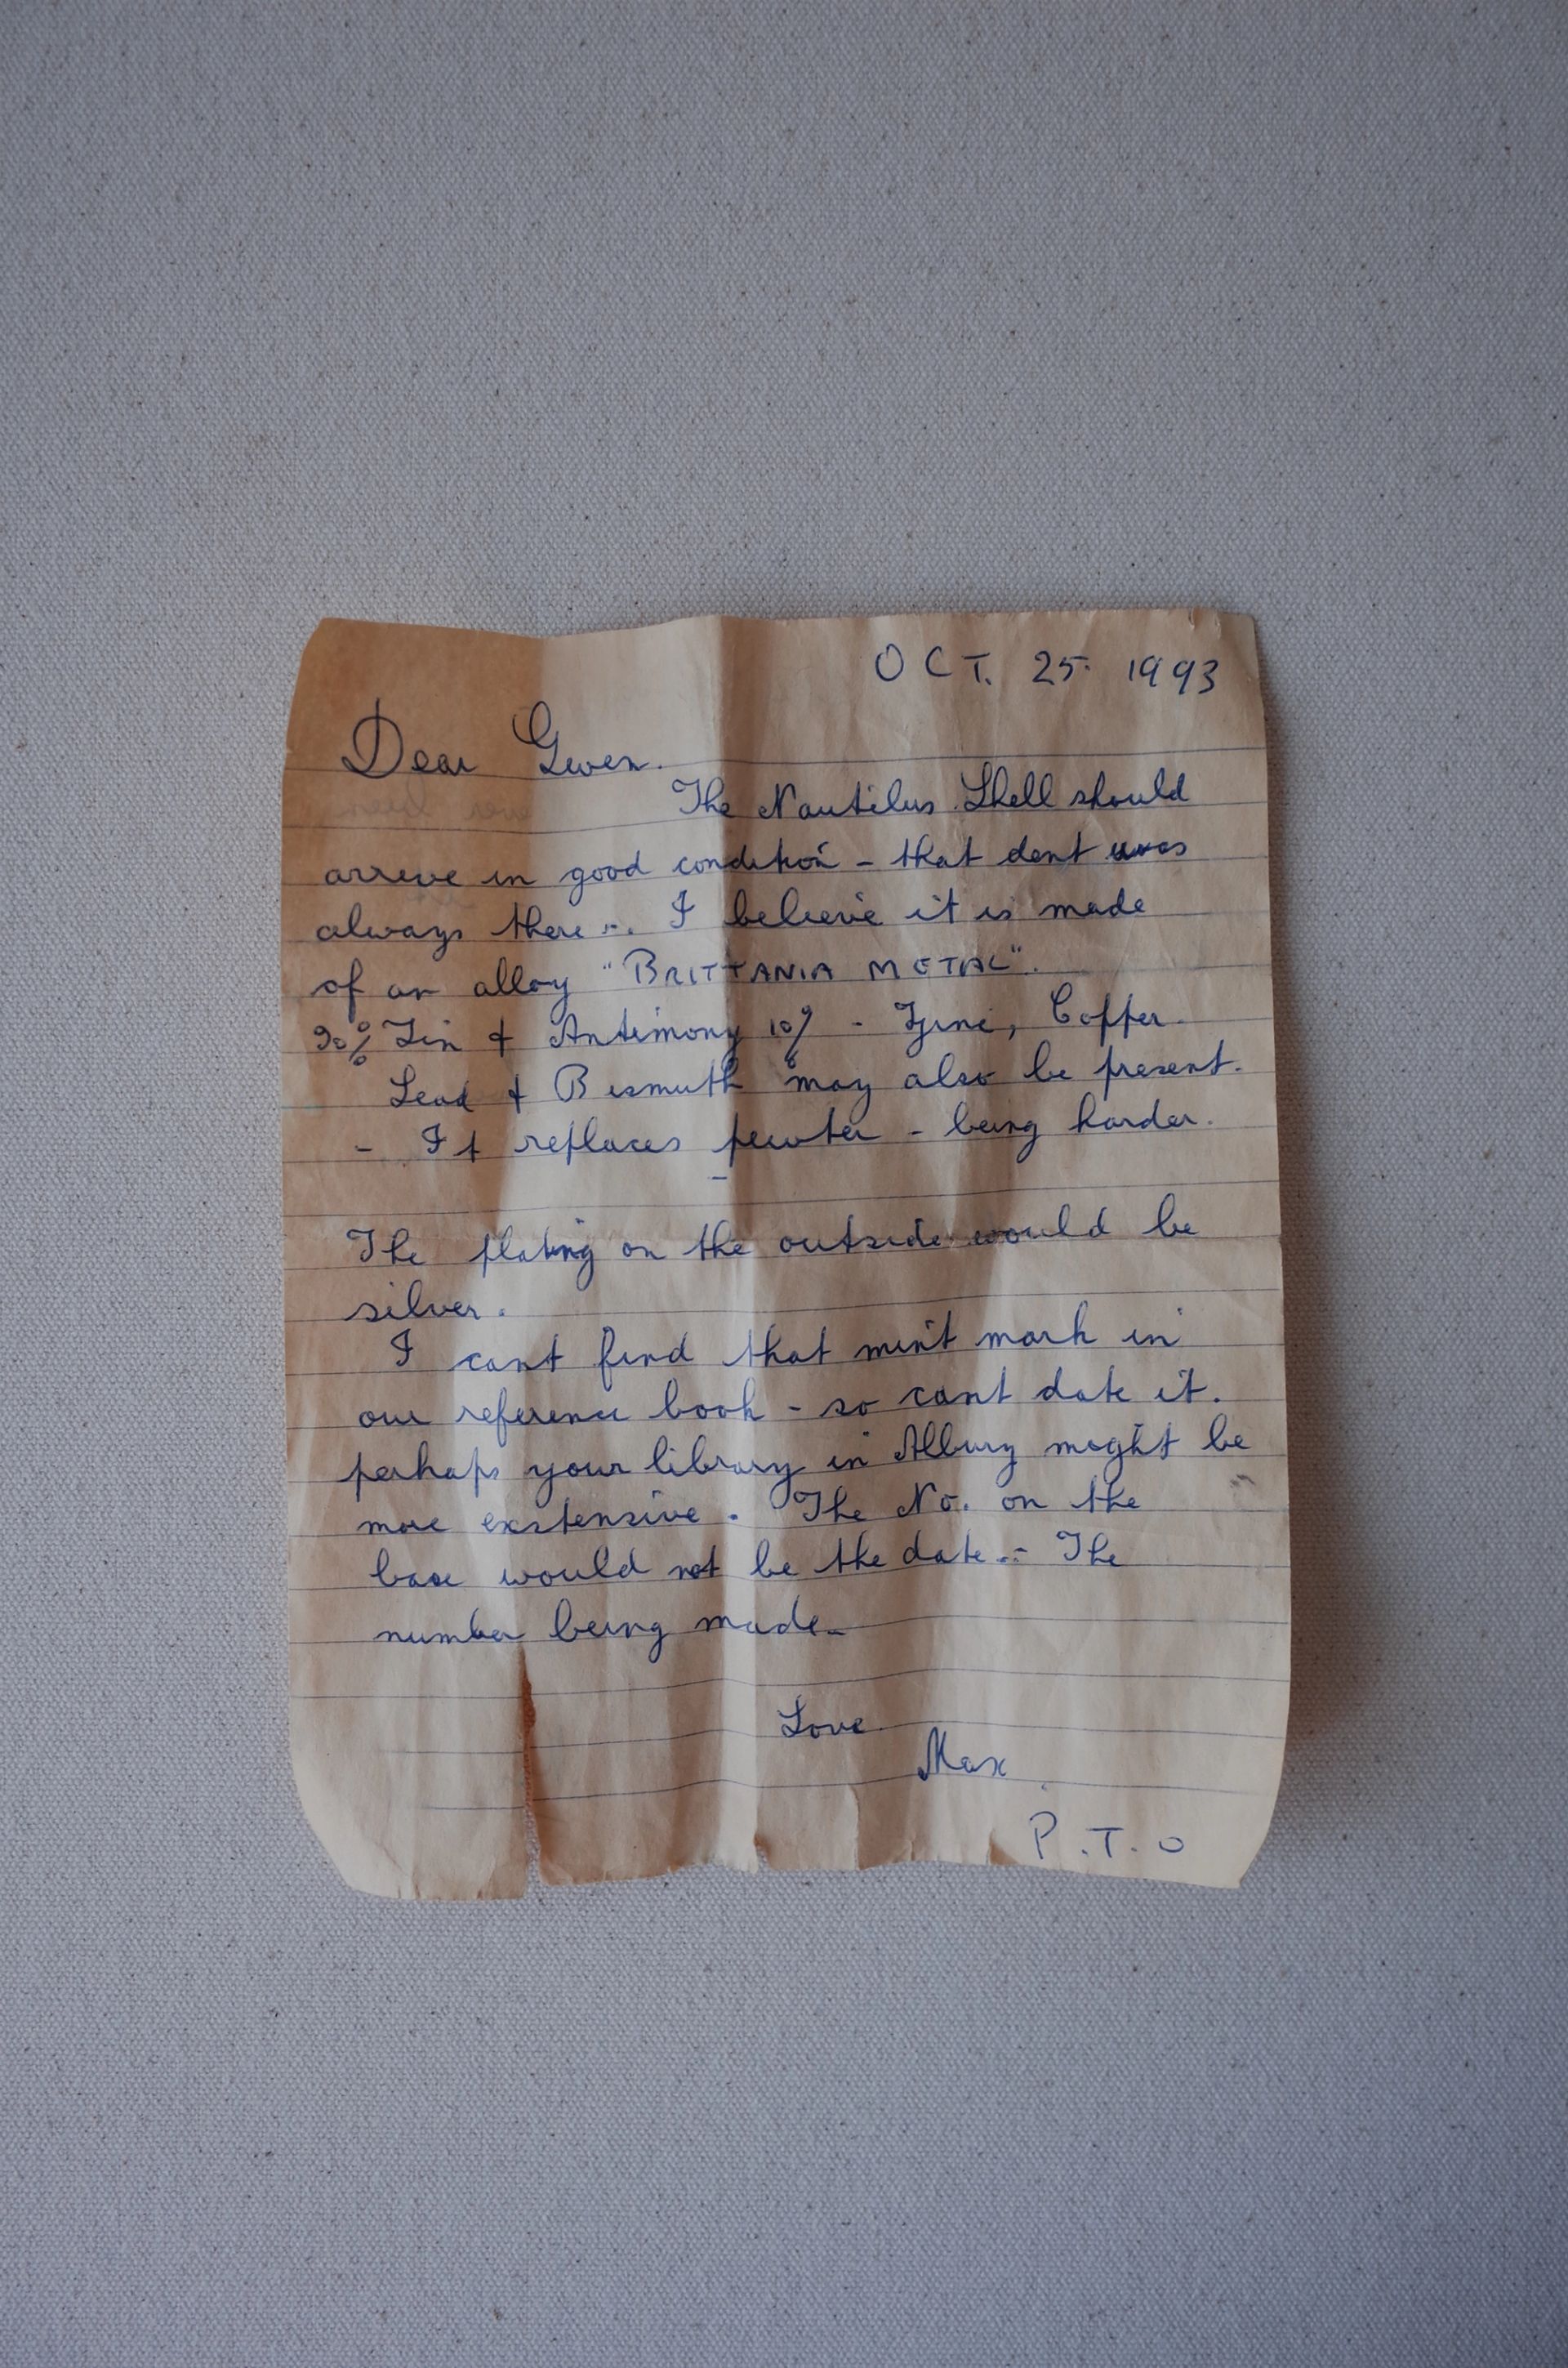 OCT. 25. 1993
Dear Gwen.
The Nautilus Shell should
arrive in good condition - that dent was
always there -. I believe it is made
of an alloy "BRITTANIA METAL".
90% Tin & Antimony 10% - Zinc, Copper
Lead & Bismuth may also be present.
- It replaces pewter - being harder.
The plating on the outside would be
silver.
I cant find that mint mark in
our reference book - so cant date it.
perhaps your library in Albury might be
more exstensive. The No. on the
base would not be the date.- The
number being made-
Love
Max
P.T.O